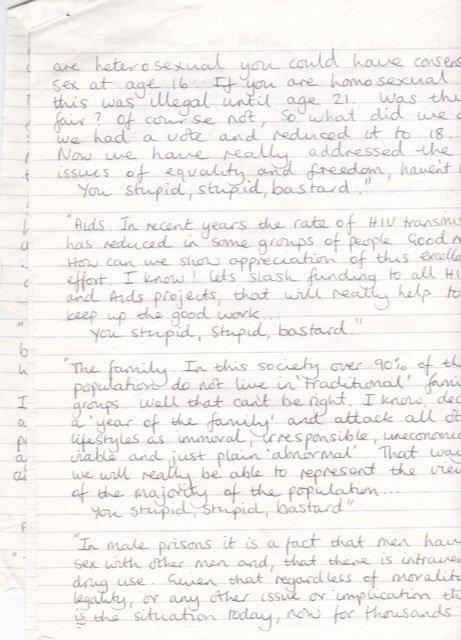 are heterosexual you could have consens
sex at age 16. If you are homosexual
this was illegal until age 21. Was this
fair? Of course not, so what did we d
we had a vote and reduced it to 18.
Now we have really addressed the
issues of equality and freedom, haven't
You stupid, stupid, bastard."
"Aids. In recent years the rate of HIV transmis
has reduced in some groups of people. Good n
How can we show appreciation of this excelle
effort. I know! lets slash funding to all HI
and Aids projects, that will really help to
keep up the good work...
You stupid, stupid, bastard."
"The family. In this society over 90% of the
population do not live in 'traditional' fami
groups. Well that can't be right. I know, dec
a 'year of the family' and attack all ot
lifestyles as immoral, irresponsible, uneconomic
viable and just plain 'abnormal'. That way
we will really be able to represent the view
of the majority of the population...
You stupid, stupid, bastard"
"In male prisons it is a fact that men hav
sex with other men and, that there is intraven
drug use. Given that regardless of moralit
legality, or any other issue or implication th
is the situation today, now for thousands